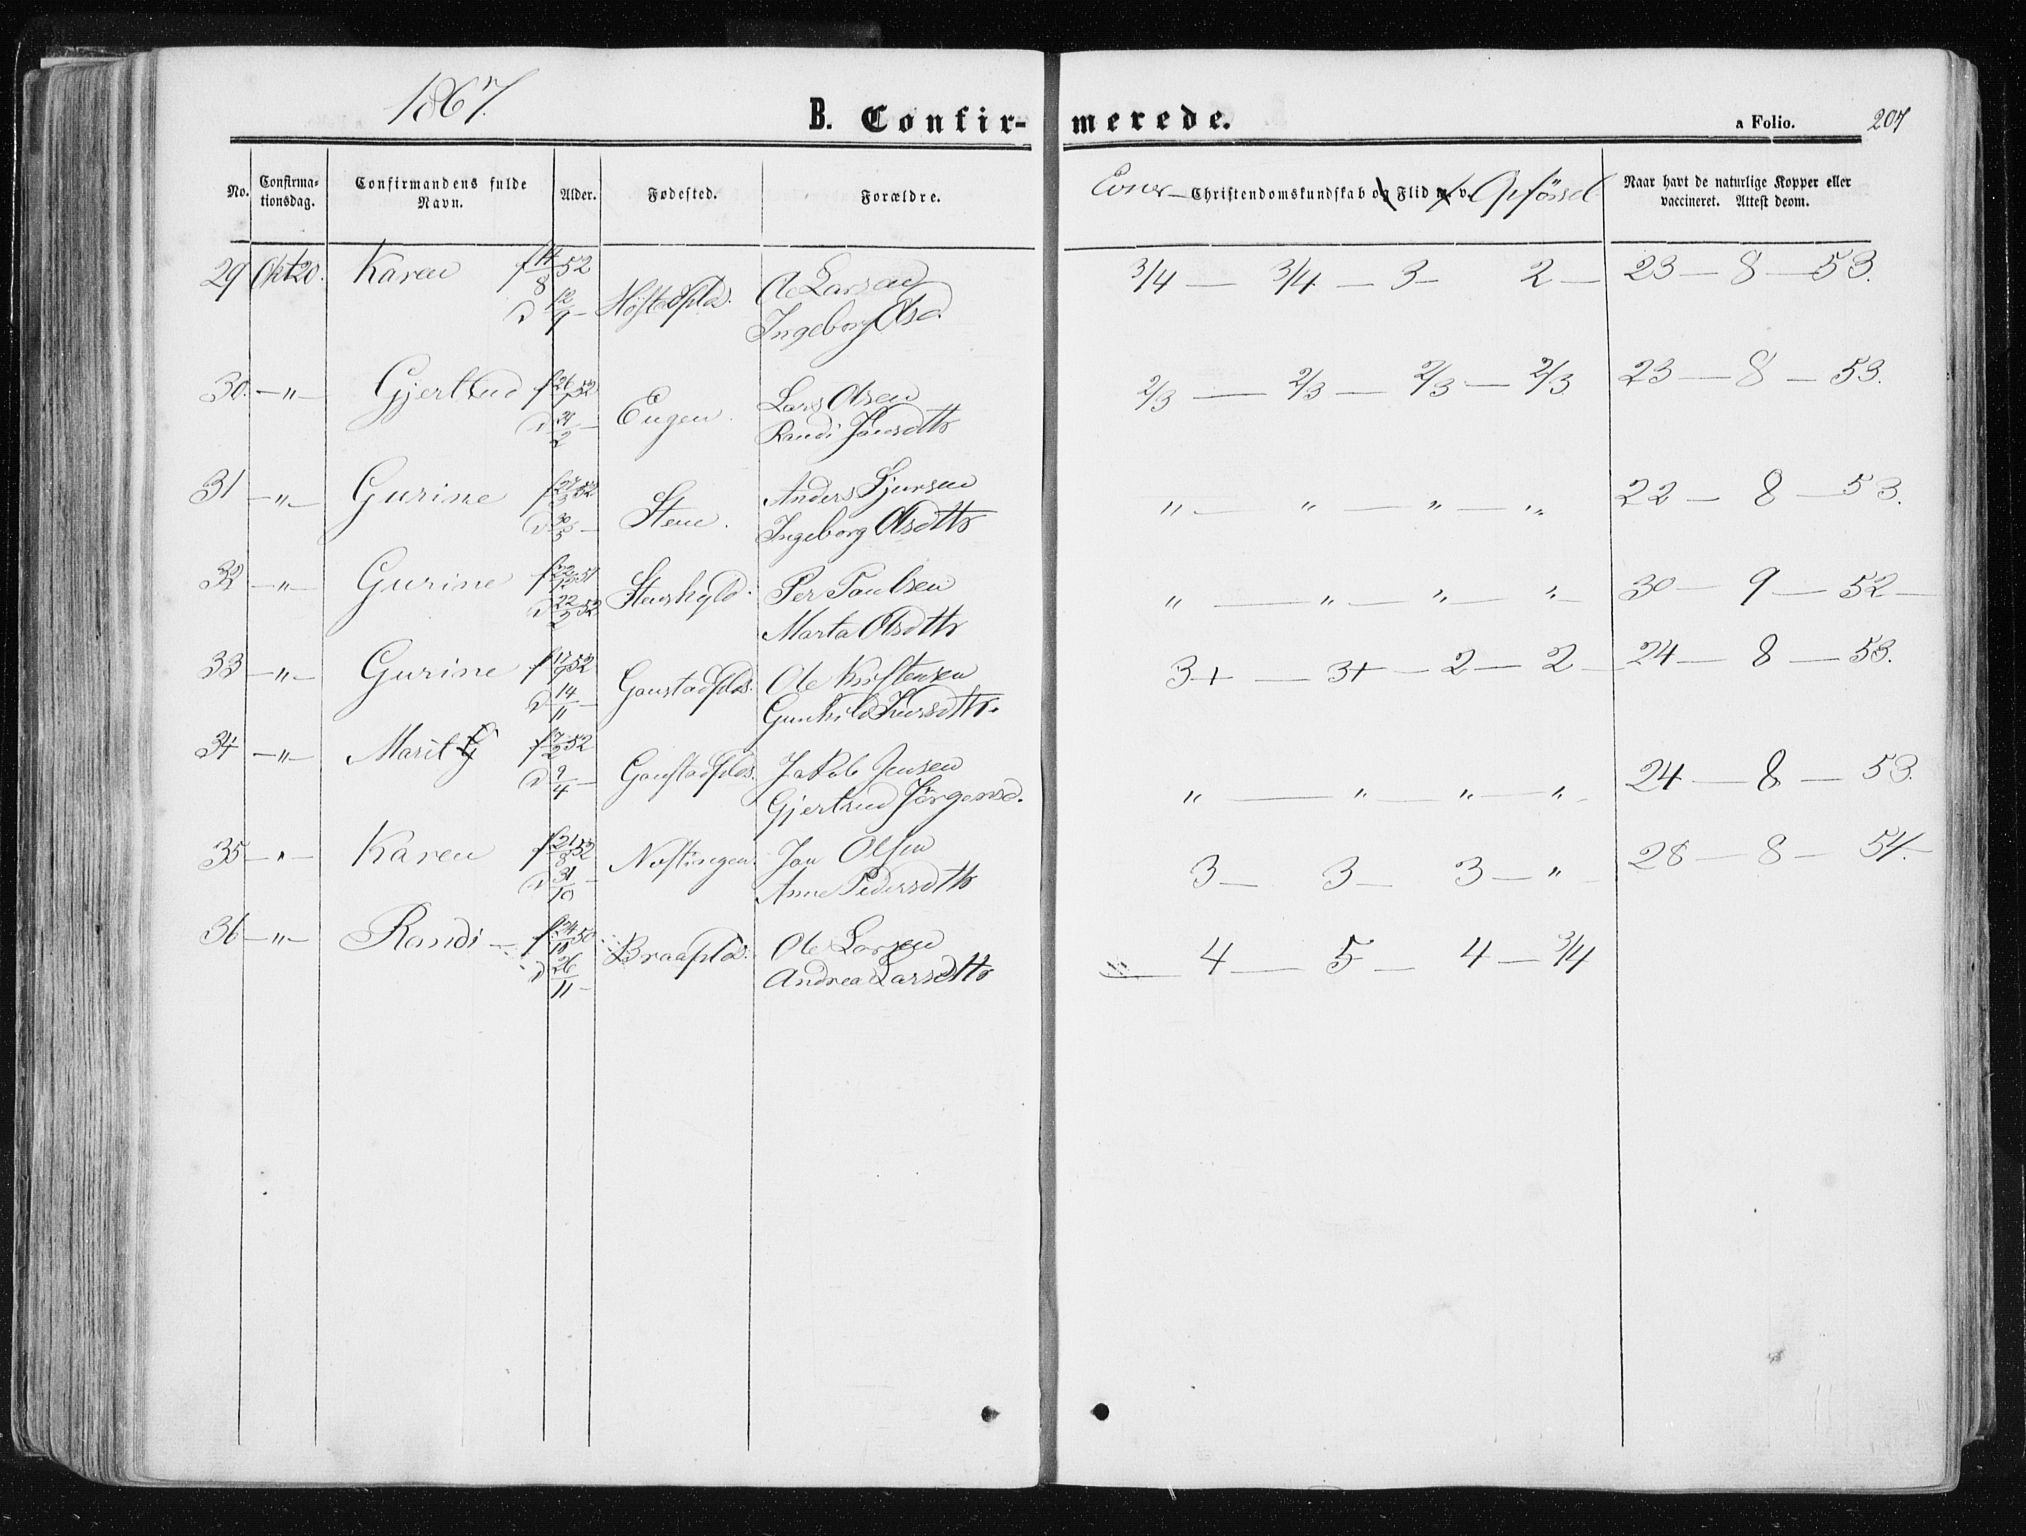 1867.
B. Confirmerede.
a Folio. 207
No. Confirmationsdag. Confirmandens fulde Navn. Alder. Fødested. Forældre. Evner Christendomskundskab og Flid m. v. Opförsel Naar havt de naturlige Kopper eller vaccineret. Attest deom.
29 Okt 20. Karen f 14/8 52 Ole Larsen 3/4 — 3/4 — 3 — 2 — 23 — 8 — 53.
d 12/9 — Ingeborg Olsd.
30. — " — Gjertrud 52 Eugen. Lars Olsen 2/3 — 2/3 — 2/3 — 2/3 23 — 8 — 53.
Randi Jansdtr
31 — " — Gurine 52 Stene. Anders 22 — 8 — 53.
" — " — " — "
Ingeborg Olsdtr
32 — " — Gurine f 22/12 51 Per Paulsen " — " — " — " — 30 — 9 — 52 —
d 22/2 52 Marta Olsdtr
33 — " — Gurine f 17/9 52 Gaustadplds. Ole Kristensen 3+ — 3+ — 2 — 2 — 24 — 8 — 53.
d 14/11 — Gunhild
34 — " — Marit G f 7/2 52 Gaustadplds. Jakob Jensen " — " — " — " — 24 — 8 — 53.
d 9/4 — Gjertrud Jörgensd.
35 — " — Karen f 21/8 52 Jon Olsen 3 — 3 — 3 — " — 28 — 8 — 54.
d 31/10 — Anne Pedersdtr
36 — " — Randi — f 24/10 50 Braaplds. Ole Larsen 4 — 5 — 4 — 3/4
d 26/11 — Andrea Larsdtr